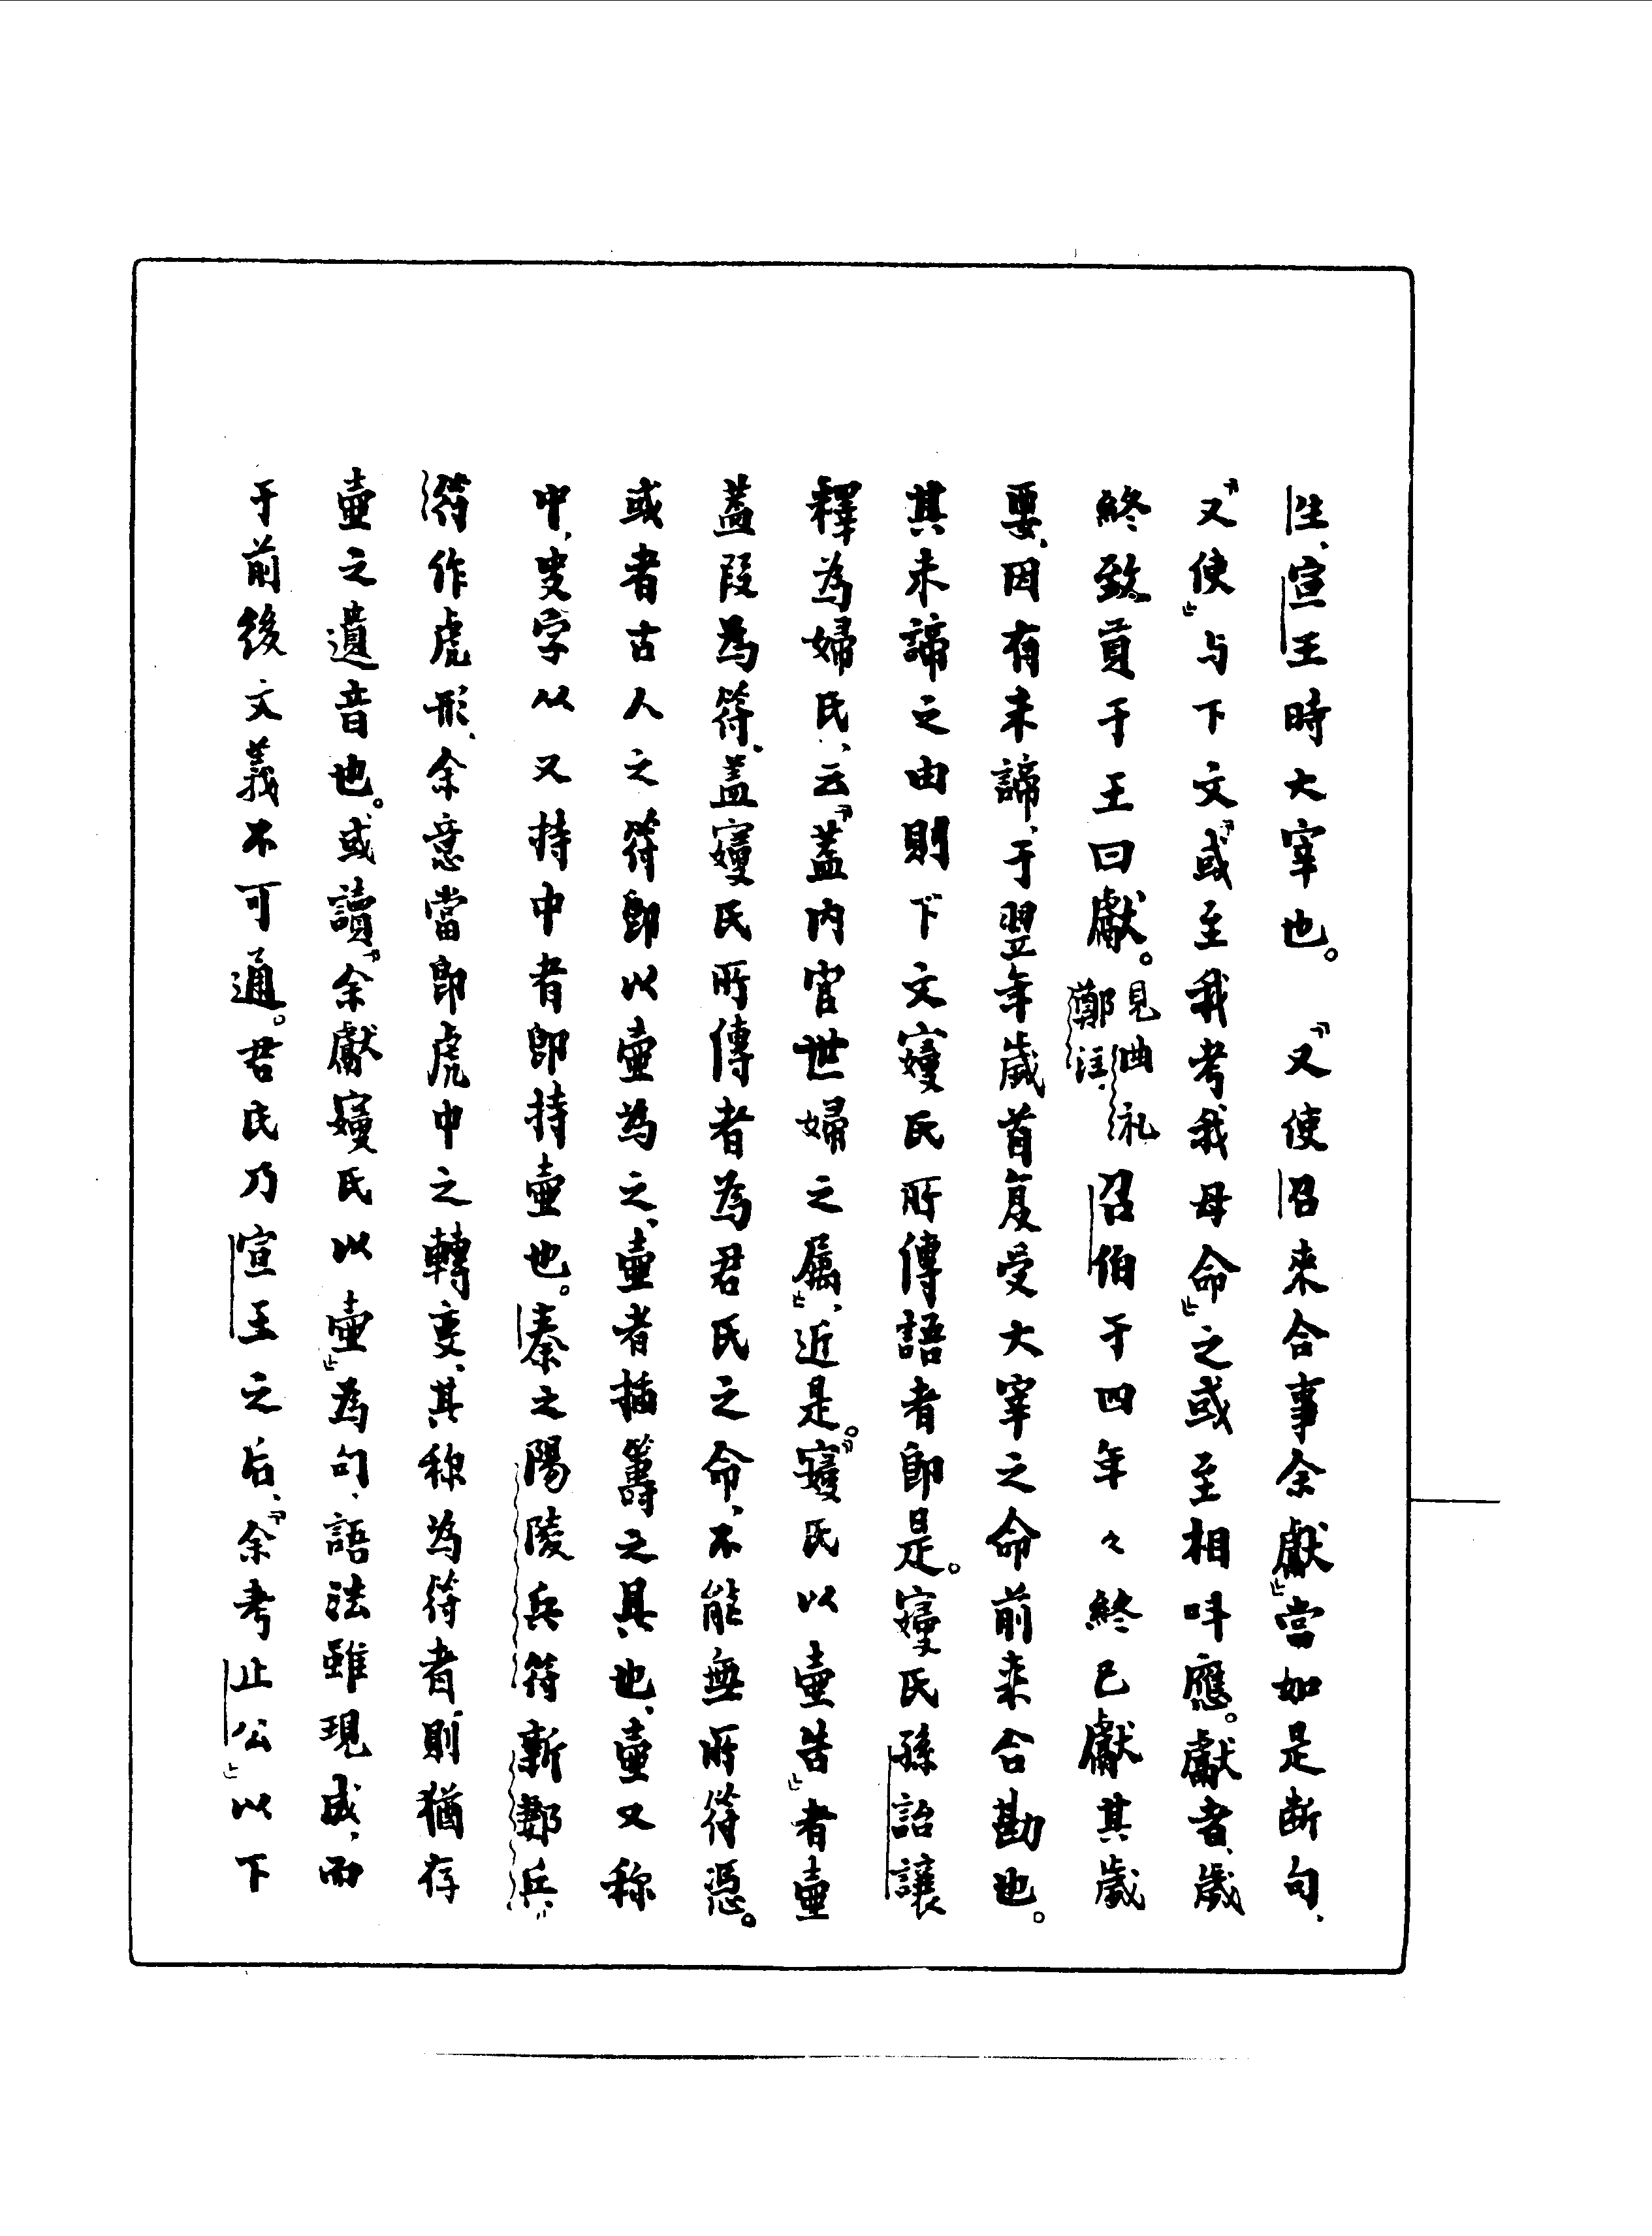 生、宣王時大宰也。「又使召来合事余獻」當如是断句、
「又使」与下文「或至我考我母命」之或至相叫應。獻者、歲
終致貢于王曰獻。見曲礼鄭注、召伯于四年々終已獻其歲
要、因有未諦、于翌年歲首复受大宰之命前来合勘也。
其未諦之由則下文𡪍氏所傳語者即是。𡪍氏孫詒讓
釋為婦氏、云「蓋内官世婦之属」、近是。「𡪍氏以壺告」者壺
蓋叚為符、蓋𡪍氏所傳者為君氏之命、不能無所符憑。
或者古人之符即以壺為之、壺者插籌之具也、壺又称
中、叓字从又持中者即持壺也。秦之陽陵兵符新郪兵
符作虎形、余意當即虎中之轉变、其称為符者、則猶存
壺之遺音也。或讀「余獻𡪍氏以壺」為句、語法雖現成、而
于前後文義不可通。君氏乃宣王之后、「余考止公」以下